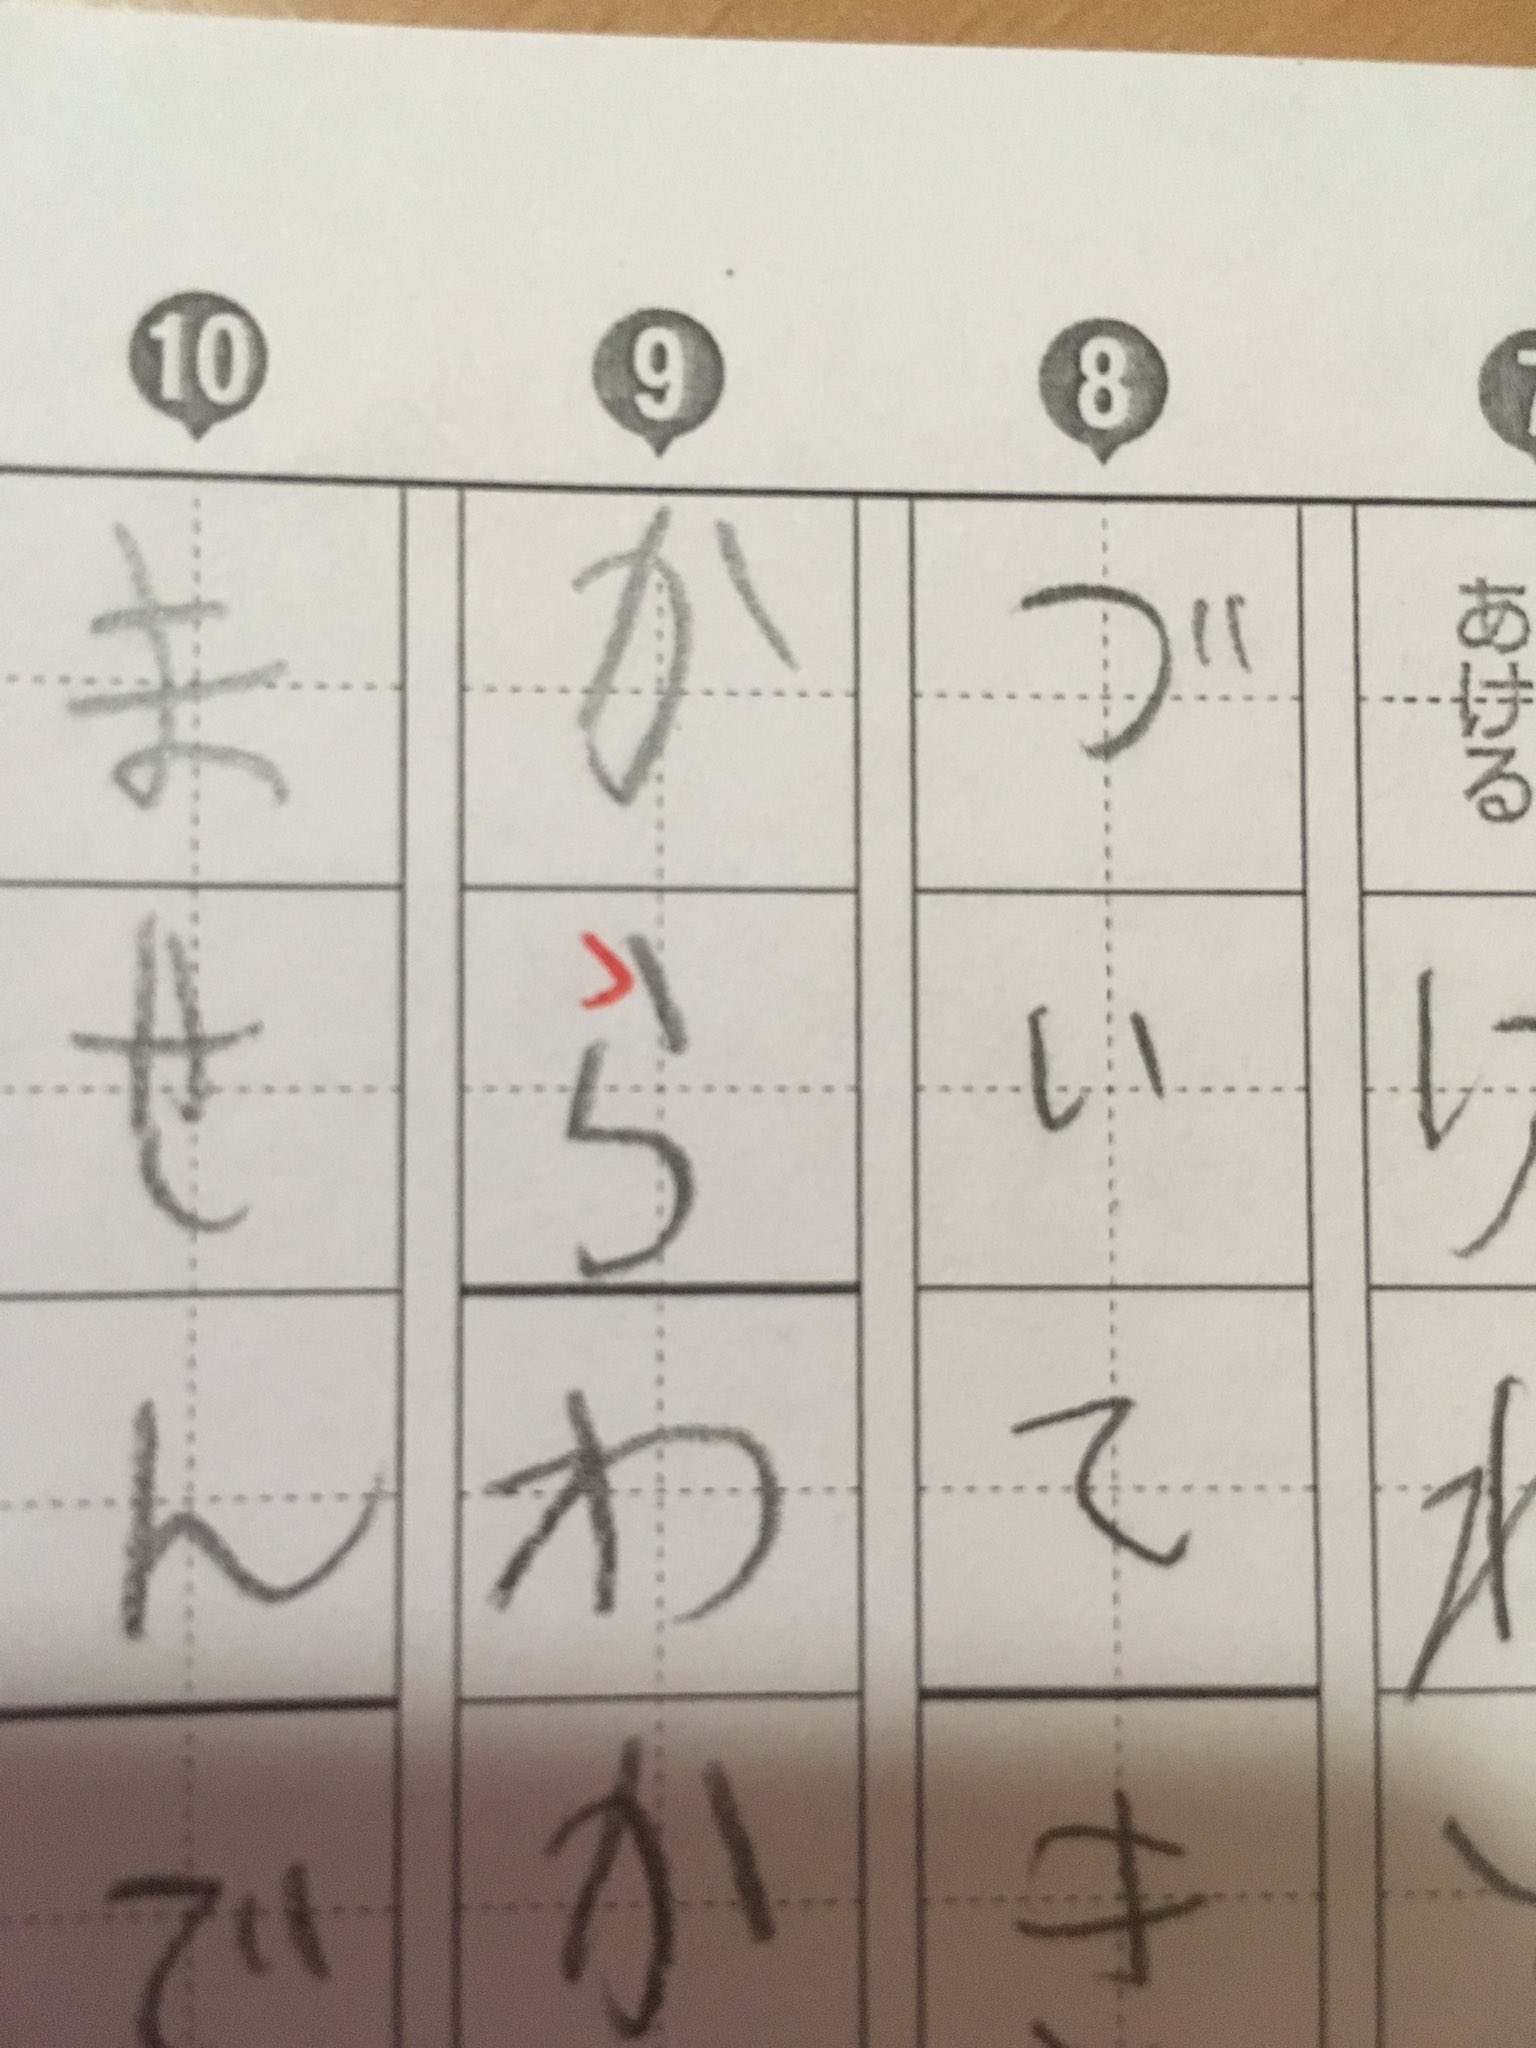 7
あける
けれ
8
づいてき
9
からわか
10
ませんで